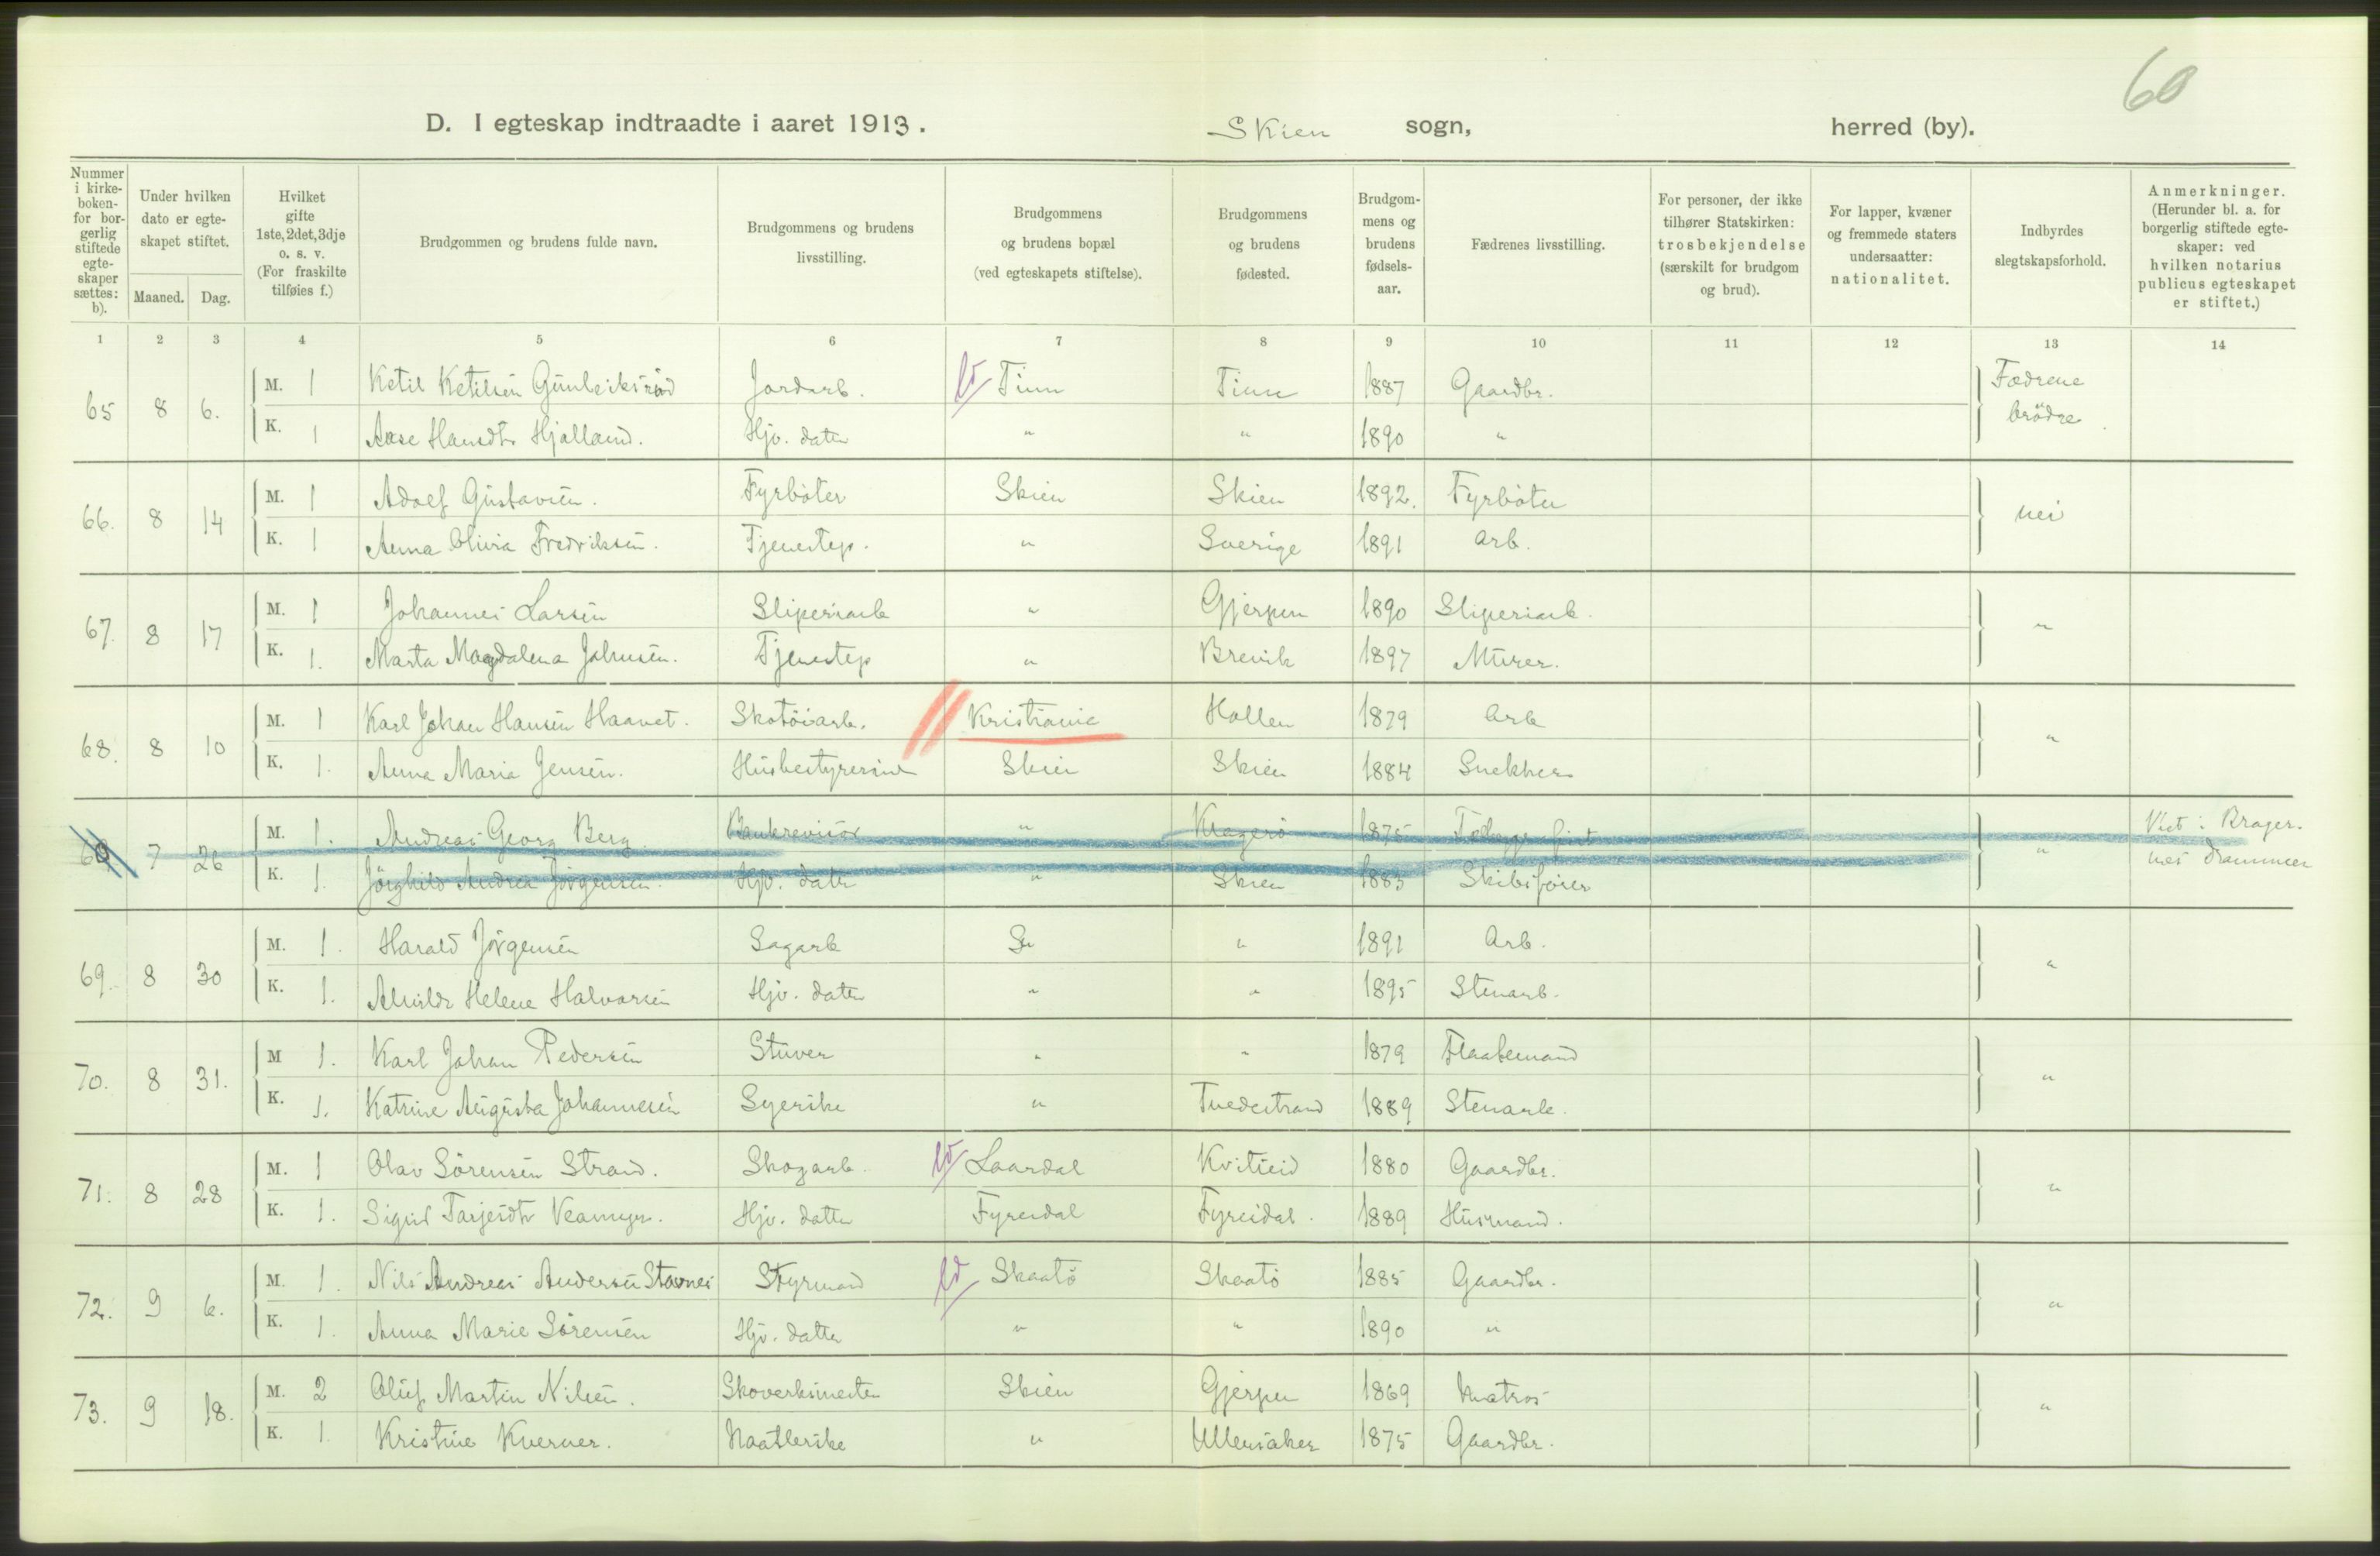 60
D. I egteskap indtraadte i aaret 1913. Skien sogn, herred (by).
Nummer i kirke-boken- for bor-gerlig stiftede egte-skaper sættes: b).
Under hvilken dato er egte-skapet stiftet.
Maaned. Dag.
Hvilket gifte 1ste, 2det, 3dje o. s. v. (For fraskilte tilføies f.)
Brudgommen og brudens fulde navn.
Brudgommens og brudens livsstilling.
Brudgommens og brudens bopæl (ved egteskapets stiftelse).
Brudgommens og brudens fødested.
Brudgom-mens og brudens fødsels-aar.
Fædrenes livsstilling.
For personer, der ikke tilhører Statskirken: trosbekjendelse (særskilt for brudgom og brud).
For lapper, kvæner og fremmede staters undersaatter: nationalitet.
Indbyrdes slegtskapsforhold.
Anmerkninger. (Herunder bl. a. for borgerlig stiftede egte-skaper: ved hvilken notarius publicus egteskapet er stiftet.)
1 2 3 4 5 6 7 8 9 10 11 12 13 14
65 8 6. M. 1 Ketil Ketilsen Gunleiksrud Jordarb. Tinn Tinn 1887 Gaardbr. Fædrene brödre
K. 1 Aase Hansdtr Hjalland. Hjv. datter " " 1890 "
66. 8 14 M. 1 Adolf Gustavsen. Fyrböter Skien Skien 1892. Fyrböter nei
K. 1 Anna Olivia Fredriksen. Tjenestep. " Sverige 1891 Arb.
67. 8 17 M. 1 Johannes Larsen Sliperiarb " Gjerpen 1890 Sliperiarb. "
K. 1. Marta Magdalena Johnsen. Tjenestep " Brevik 1897 Murer.
68. 8 10 M. 1 Karl Johan Hansen Haavet. Skotöiarb. Kristiania Hollen 1879 Arb "
K. 1. Anna Maria Jensen. Husbestyrerinde Skien Skien 1884 Snekker
69 7 26 M. 1. Andreas Georg Berg. Bankrevisor " Kragerö 1875 " Viet i Brager-
K. 1. Jörghild Andrea Jörgensen. Hjv. dattr " Skien 1883 Skibsförer nes Drammen
69. 8 30 M. 1. Harald Jörgensen Sagarb Sk " 1891 Arb. "
K. 1. Alvilde Helene Halvorsen Hjv. datter " " 1895 Stenarb.
70. 8 31. M 1. Karl Johan Pedersen Stuver " " 1879 Flaatemand "
K. 1. Katrine Augusta Johannesen Syerske " Tvedestrand 1889 Stenarb.
71. 8 28 M. 1 Olav Sörensen Strand. Skogarb. Laardal Kvitseid 1880 Gaardbr. "
K. 1. Sigrid Tarjeidtr Veamyr. Hjv. datter Fyresdal Fyresdal. 1889 Husmand.
72. 9 6. M. 1. Nils Andreas Andersen Stavnes Styrmand Skaatö Skaatö 1885 Gaardbr. "
K. 1. Anna Marie Sörensen Hjv. datter " " 1890 "
73. 9 18. M. 2 Oluf Martin Nilsen. Skoverksmester Skien Gjerpen 1869 Matros "
K. 1. Kristine Kverner. Naatlerske " Ullensaker 1875 Gaardbr.